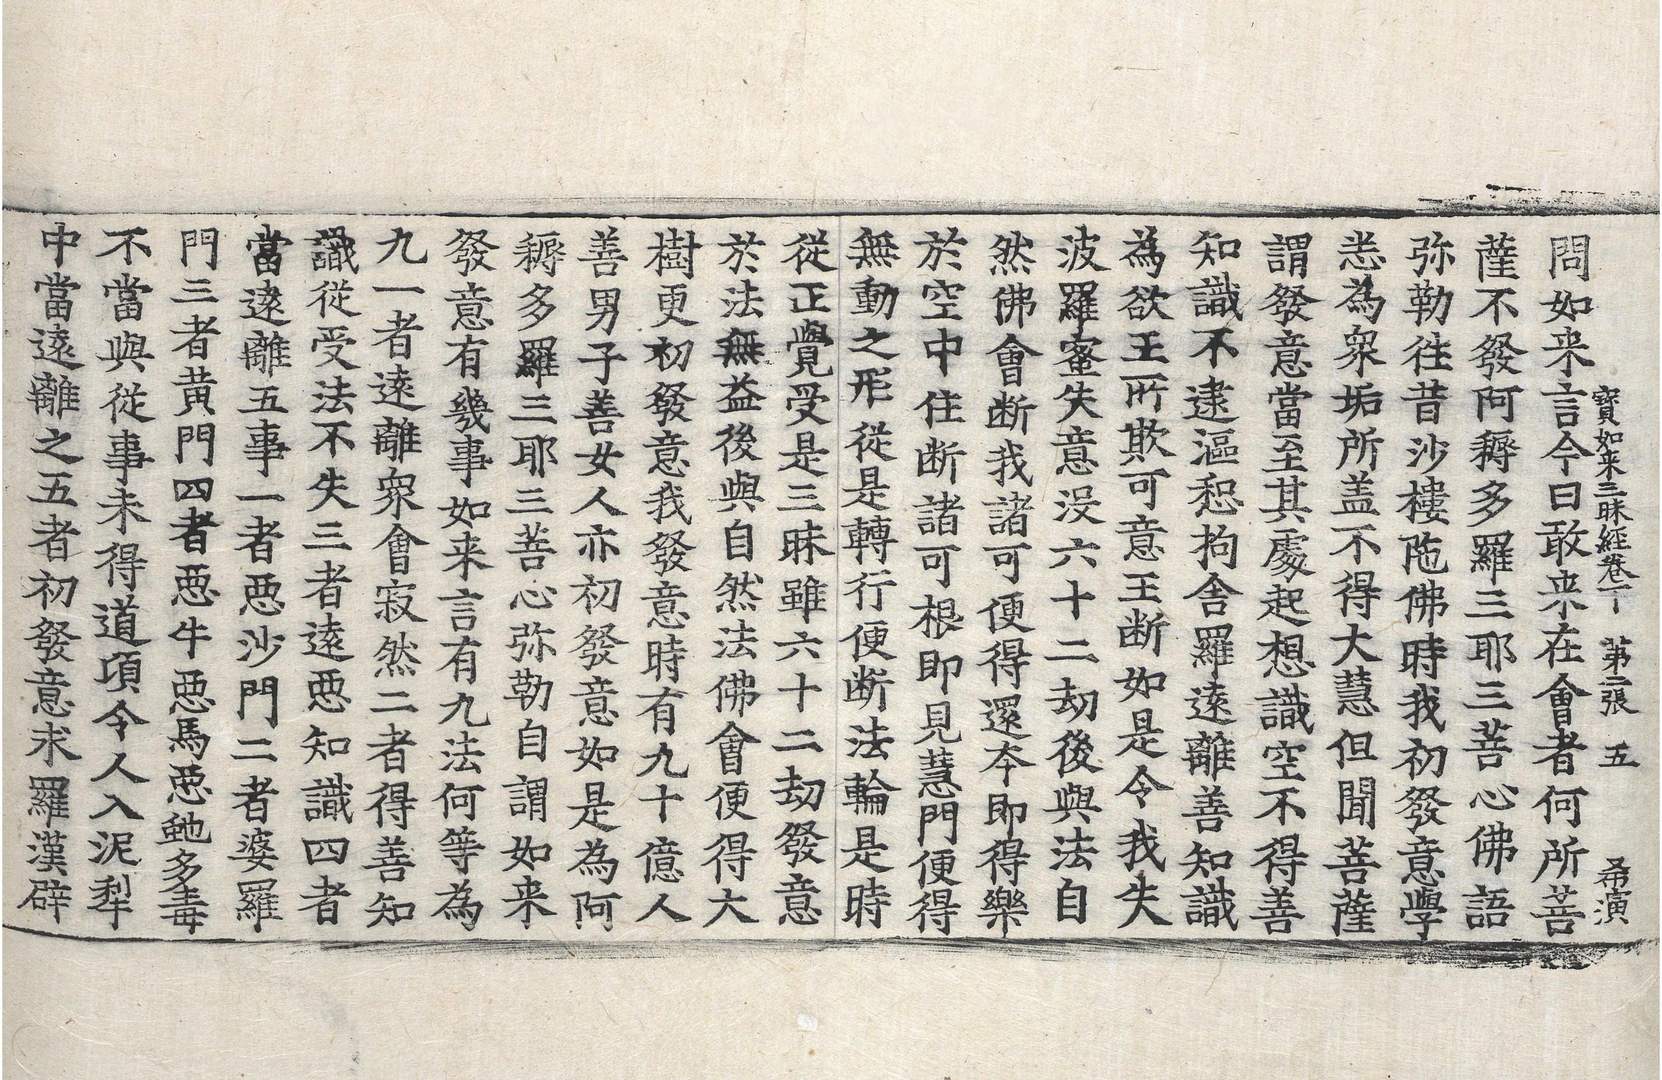 寶如来三昧經卷下 第二張 五 希演
問如来言今日敢来在會者何所菩
薩不發阿耨多羅三耶三菩心佛語
弥勒往昔沙樓陁佛時我初發意學
悉為衆垢所盖不得大慧但聞菩薩
謂發意當至其處起想識空不得善
知識不逮漚惒拘舍羅遠離善知識
為欲王所欺可意王断如是令我失
波羅蜜失意没六十二劫後與法自
然佛會断我諸可便得還夲即得樂
於空中住断諸可根即見慧門便得
無動之形從是轉行便断法輪是時
從正覺受是三昧雖六十二劫發意
於法無益後與自然法佛會便得大
樹更初發意我發意時有九十億人
善男子善女人亦初發意如是為阿
耨多羅三耶三菩心弥勒自謂如来
發意有幾事如来言有九法何等為
九一者遠離衆會寂然二者得善知
識從受法不失三者遠惡知識四者
當遠離五事一者惡沙門二者婆羅
門三者黄門四者惡牛惡馬惡虵多毒
不當與從事未得道頃令人入泥犁
中當遠離之五者初發意求羅漢辟